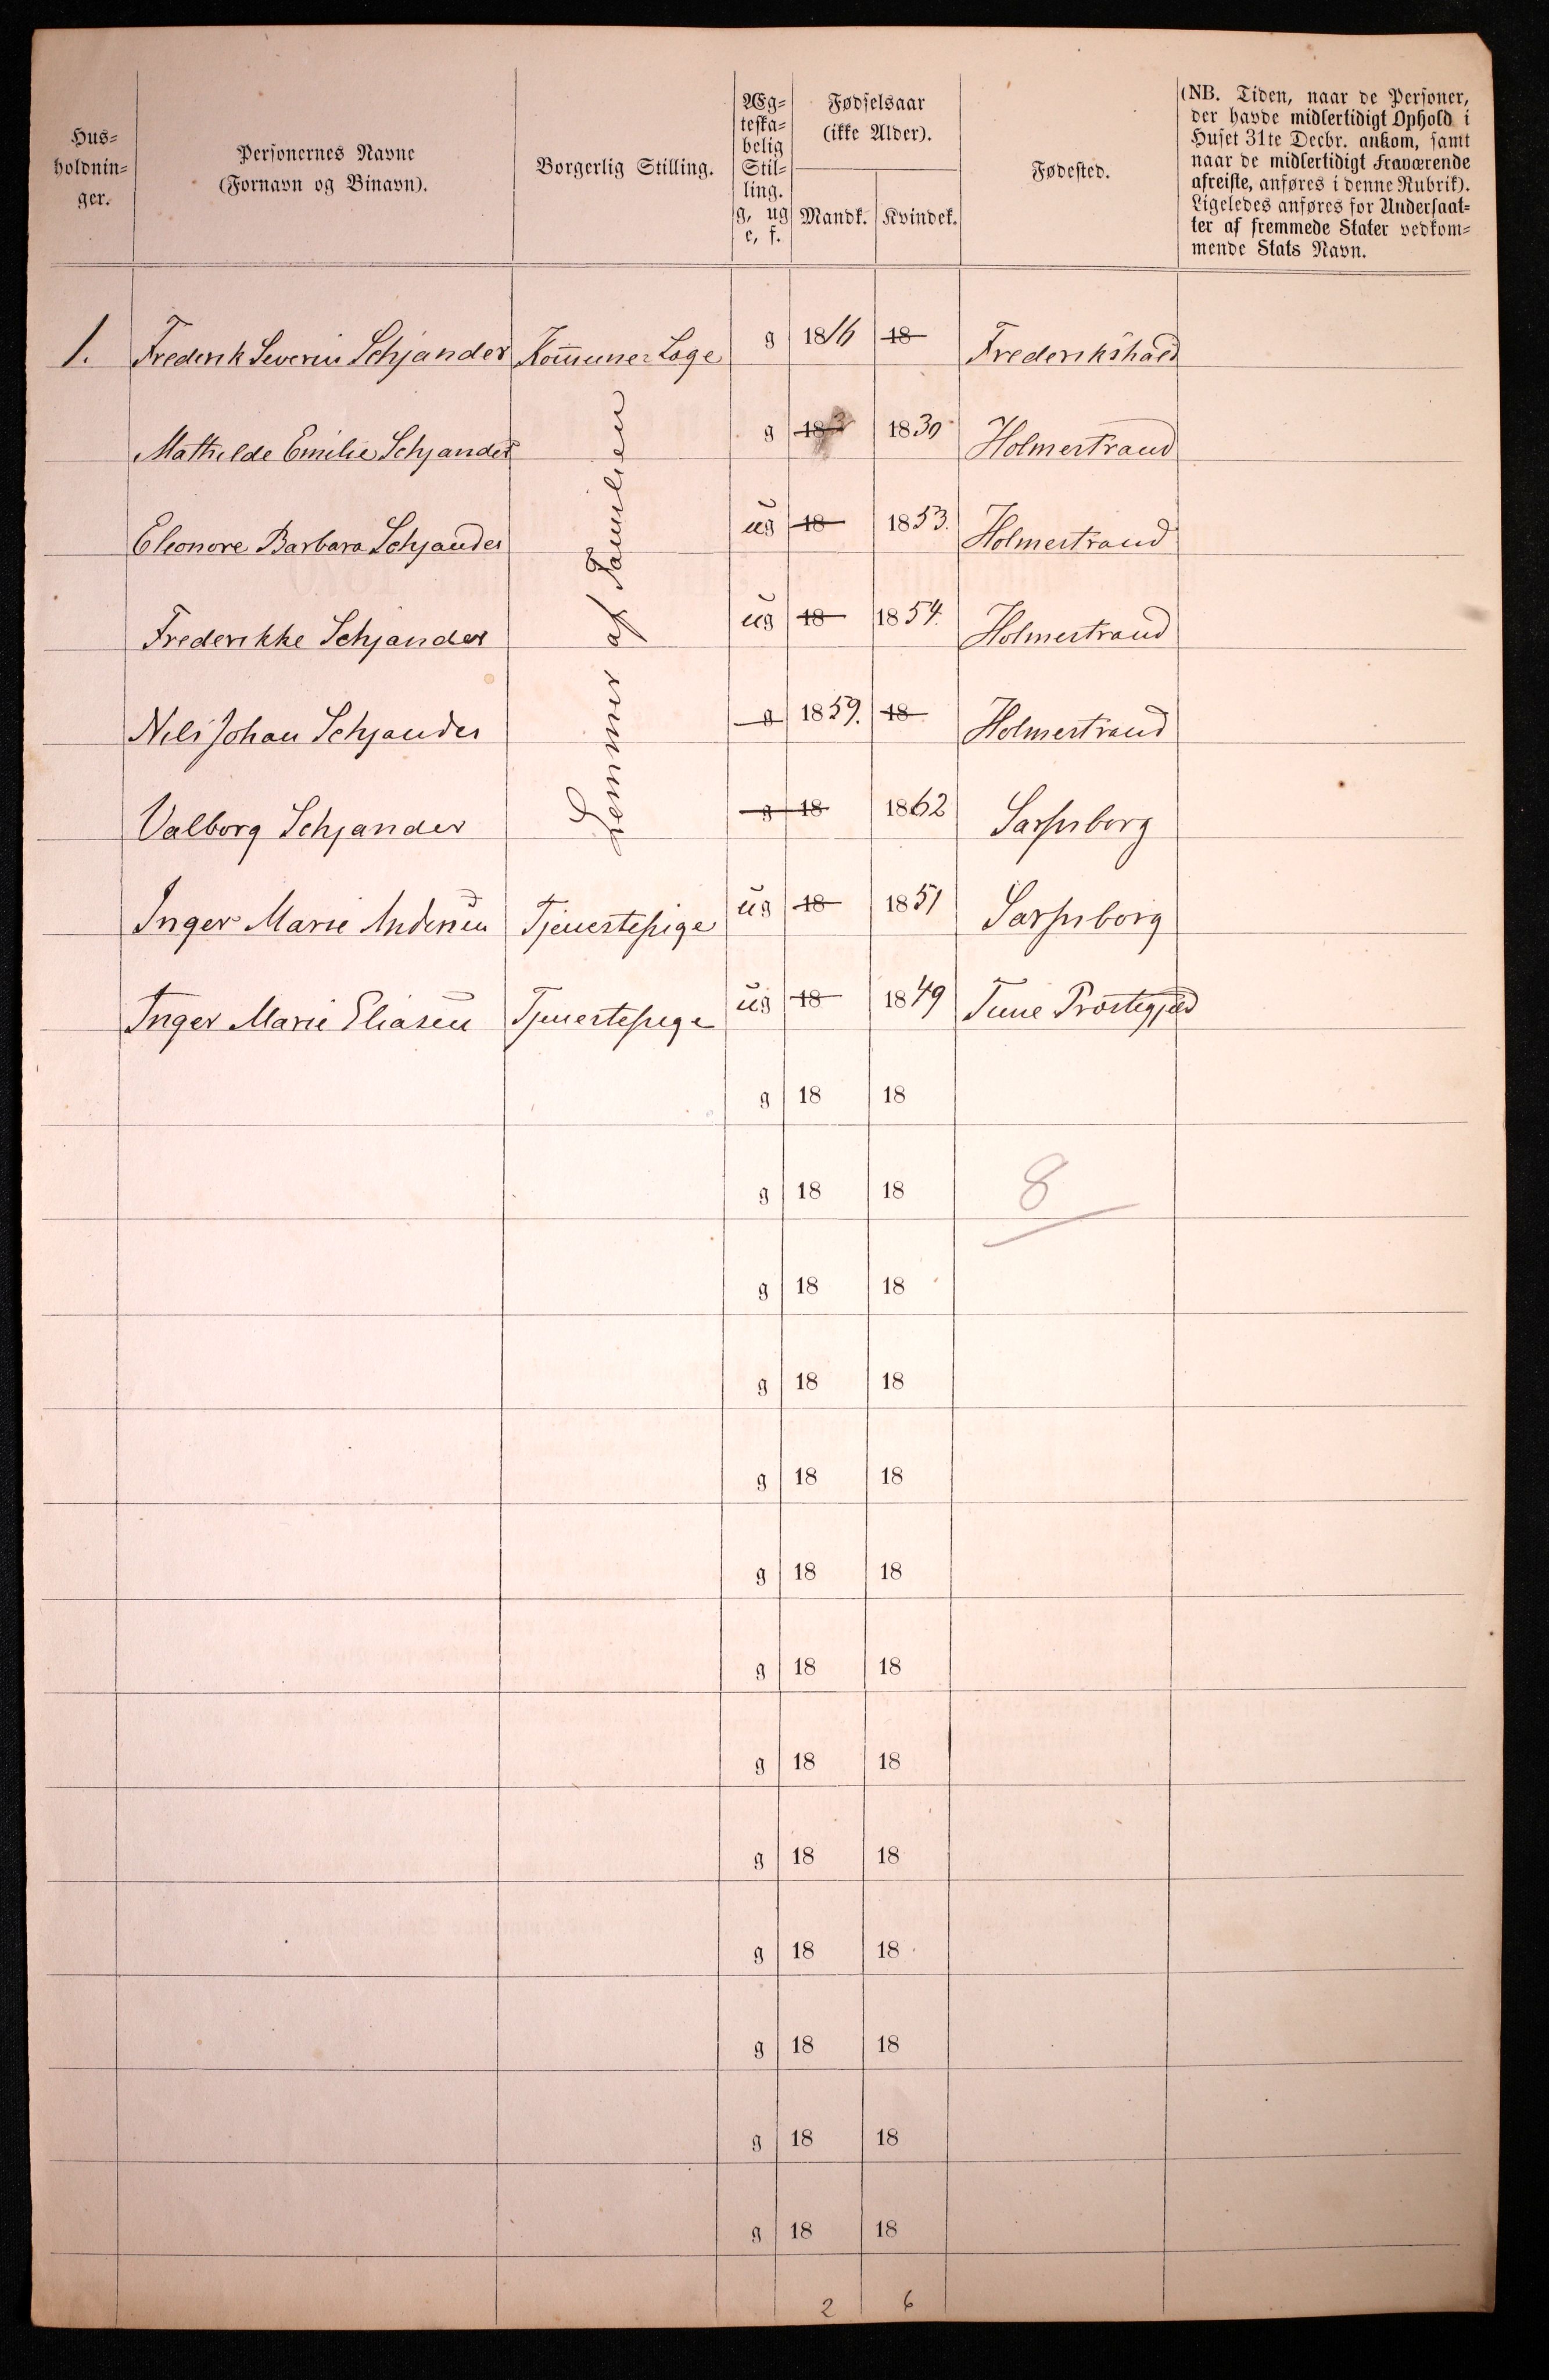 Hus-
holdnin-
ger.
Personernes Navne
(Fornavn og Binavn).
Borgerlig Stilling.
Æg-
teska-
belig
Stil-
ling.
g, ug
e, f.
Fødselsaar
(ikke Alder).
Mandk.
Kvindek.
Fødested.
(NB. Tiden, naar de Personer,
der havde midlertidigt Ophold i
Huset 31te Decbr. ankom, samt
naar de midlertidigt Fraværende
afreiste, anføres i denne Rubrik).
Ligeledes anføres for Undersaat-
ter af fremmede Stater vedkom-
mende Stats Navn.
1. Frederik Severin Schjander Kommune-Læge g 1816 18 Frederikshald
Mathilde Emilie Schjander g 183 1830 Holmestrand
Eleonore Barbara Schjander ug 18 1853. Holmestrand
Frederikke Schjander ug 18 1854. Holmestrand
Nils Johan Schjander g 1859. 18 Holmestrand
Valborg Schjander g 18 1862 Sarpsborg
Lemmer af Familien
Inger Marie Andersen Tjenestepige ug 18 1851 Sarpsborg
Inger Marie Eliasen Tjenestepige ug 18 1849 Tune Præstegjeld
g 18 18
g 18 18 8
g 18 18
g 18 18
g 18 18
g 18 18
g 18 18
g 18 18
g 18 18
g 18 18
g 18 18
g 18 18
g 18 18
2 6